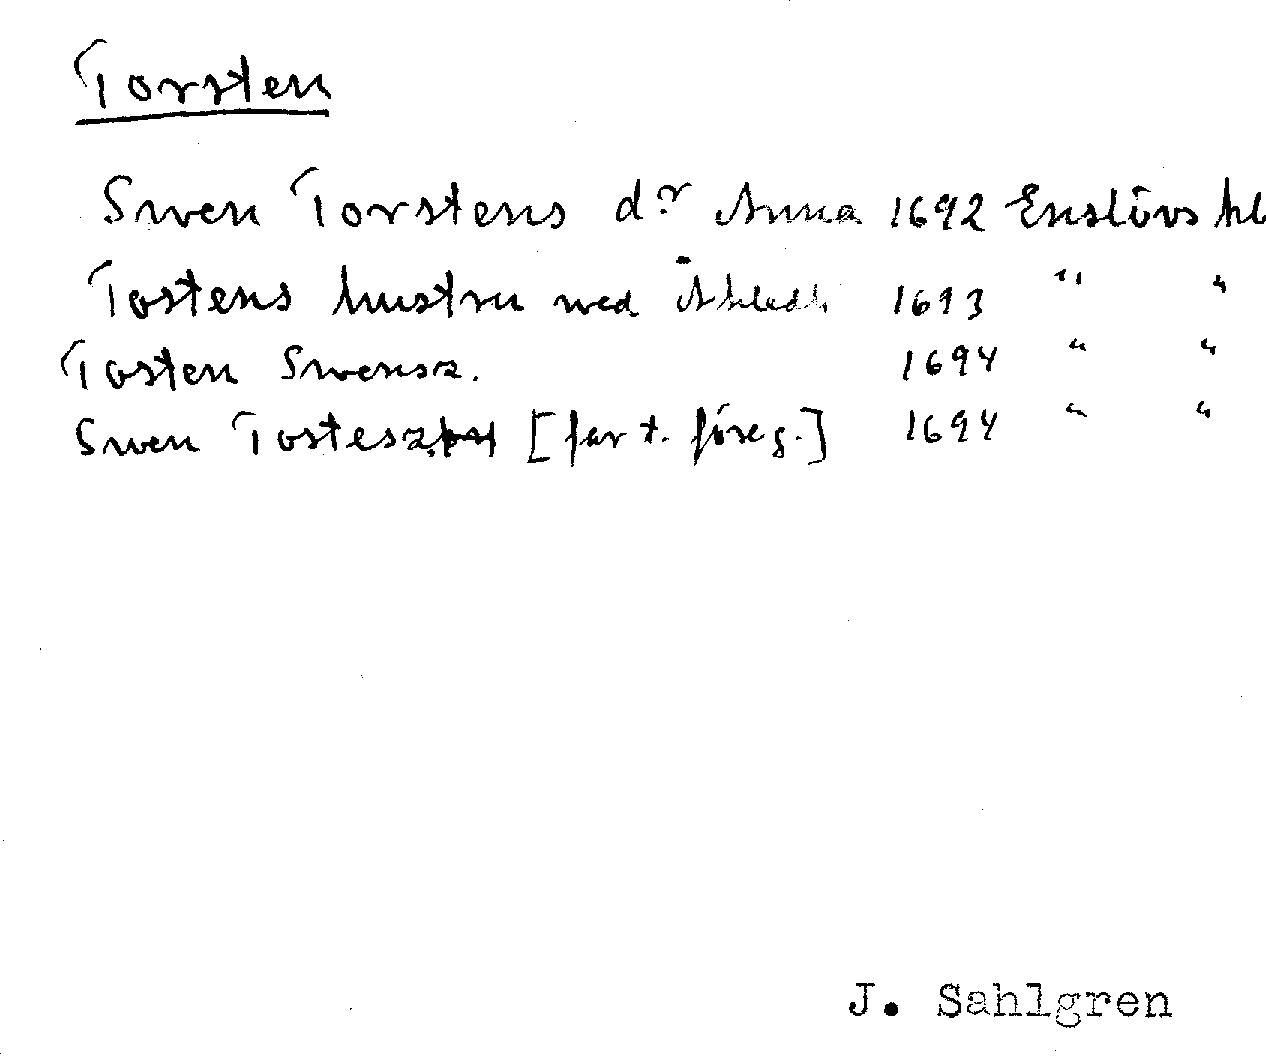 Torsten
Swen Torstens dr Anna 1692 Enslövs kb
Tostens hustru wed 1693 " "
Tosten Swensz. 1694 " "
Swen Tostesz. [far t. föreg.] 1694 " "
J. Sahlgren